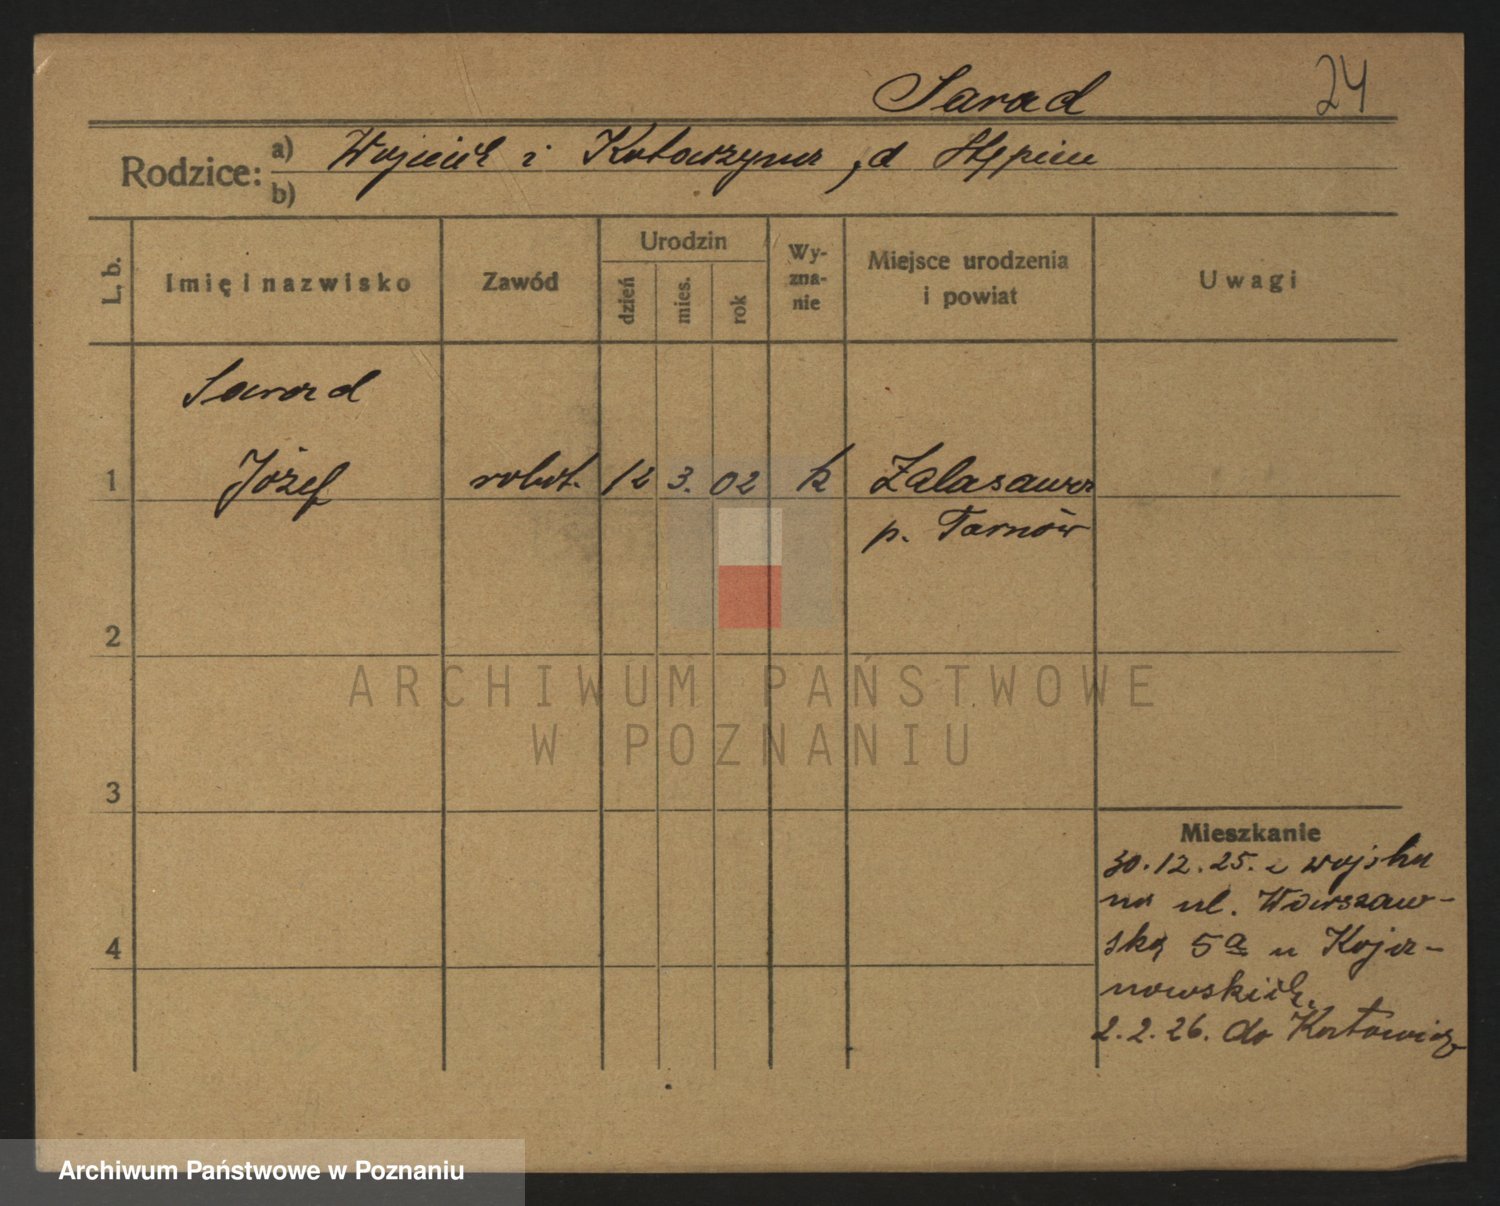 Sarad 24
Rodzice: a) Wojciech i Katarzyna z d Stępień
b)
L. b. Imię i nazwisko Zawód Urodzin dzień mies. rok Wy-zna-nie Miejsce urodzenia i powiat Uwagi
Sarad
1 Józef robot. 12 3. 02 k Zalasawa
p. Tarnów
2
3
4
Mieszkanie
30.12.25. z wojska
na ul. Warszaw-
ską 5a u Koja-
nowskich.
2.2.26. do Katowic
ARCHIWUM PAŃSTWOWE
W POZNANIU
Archiwum Państwowe w Poznaniu